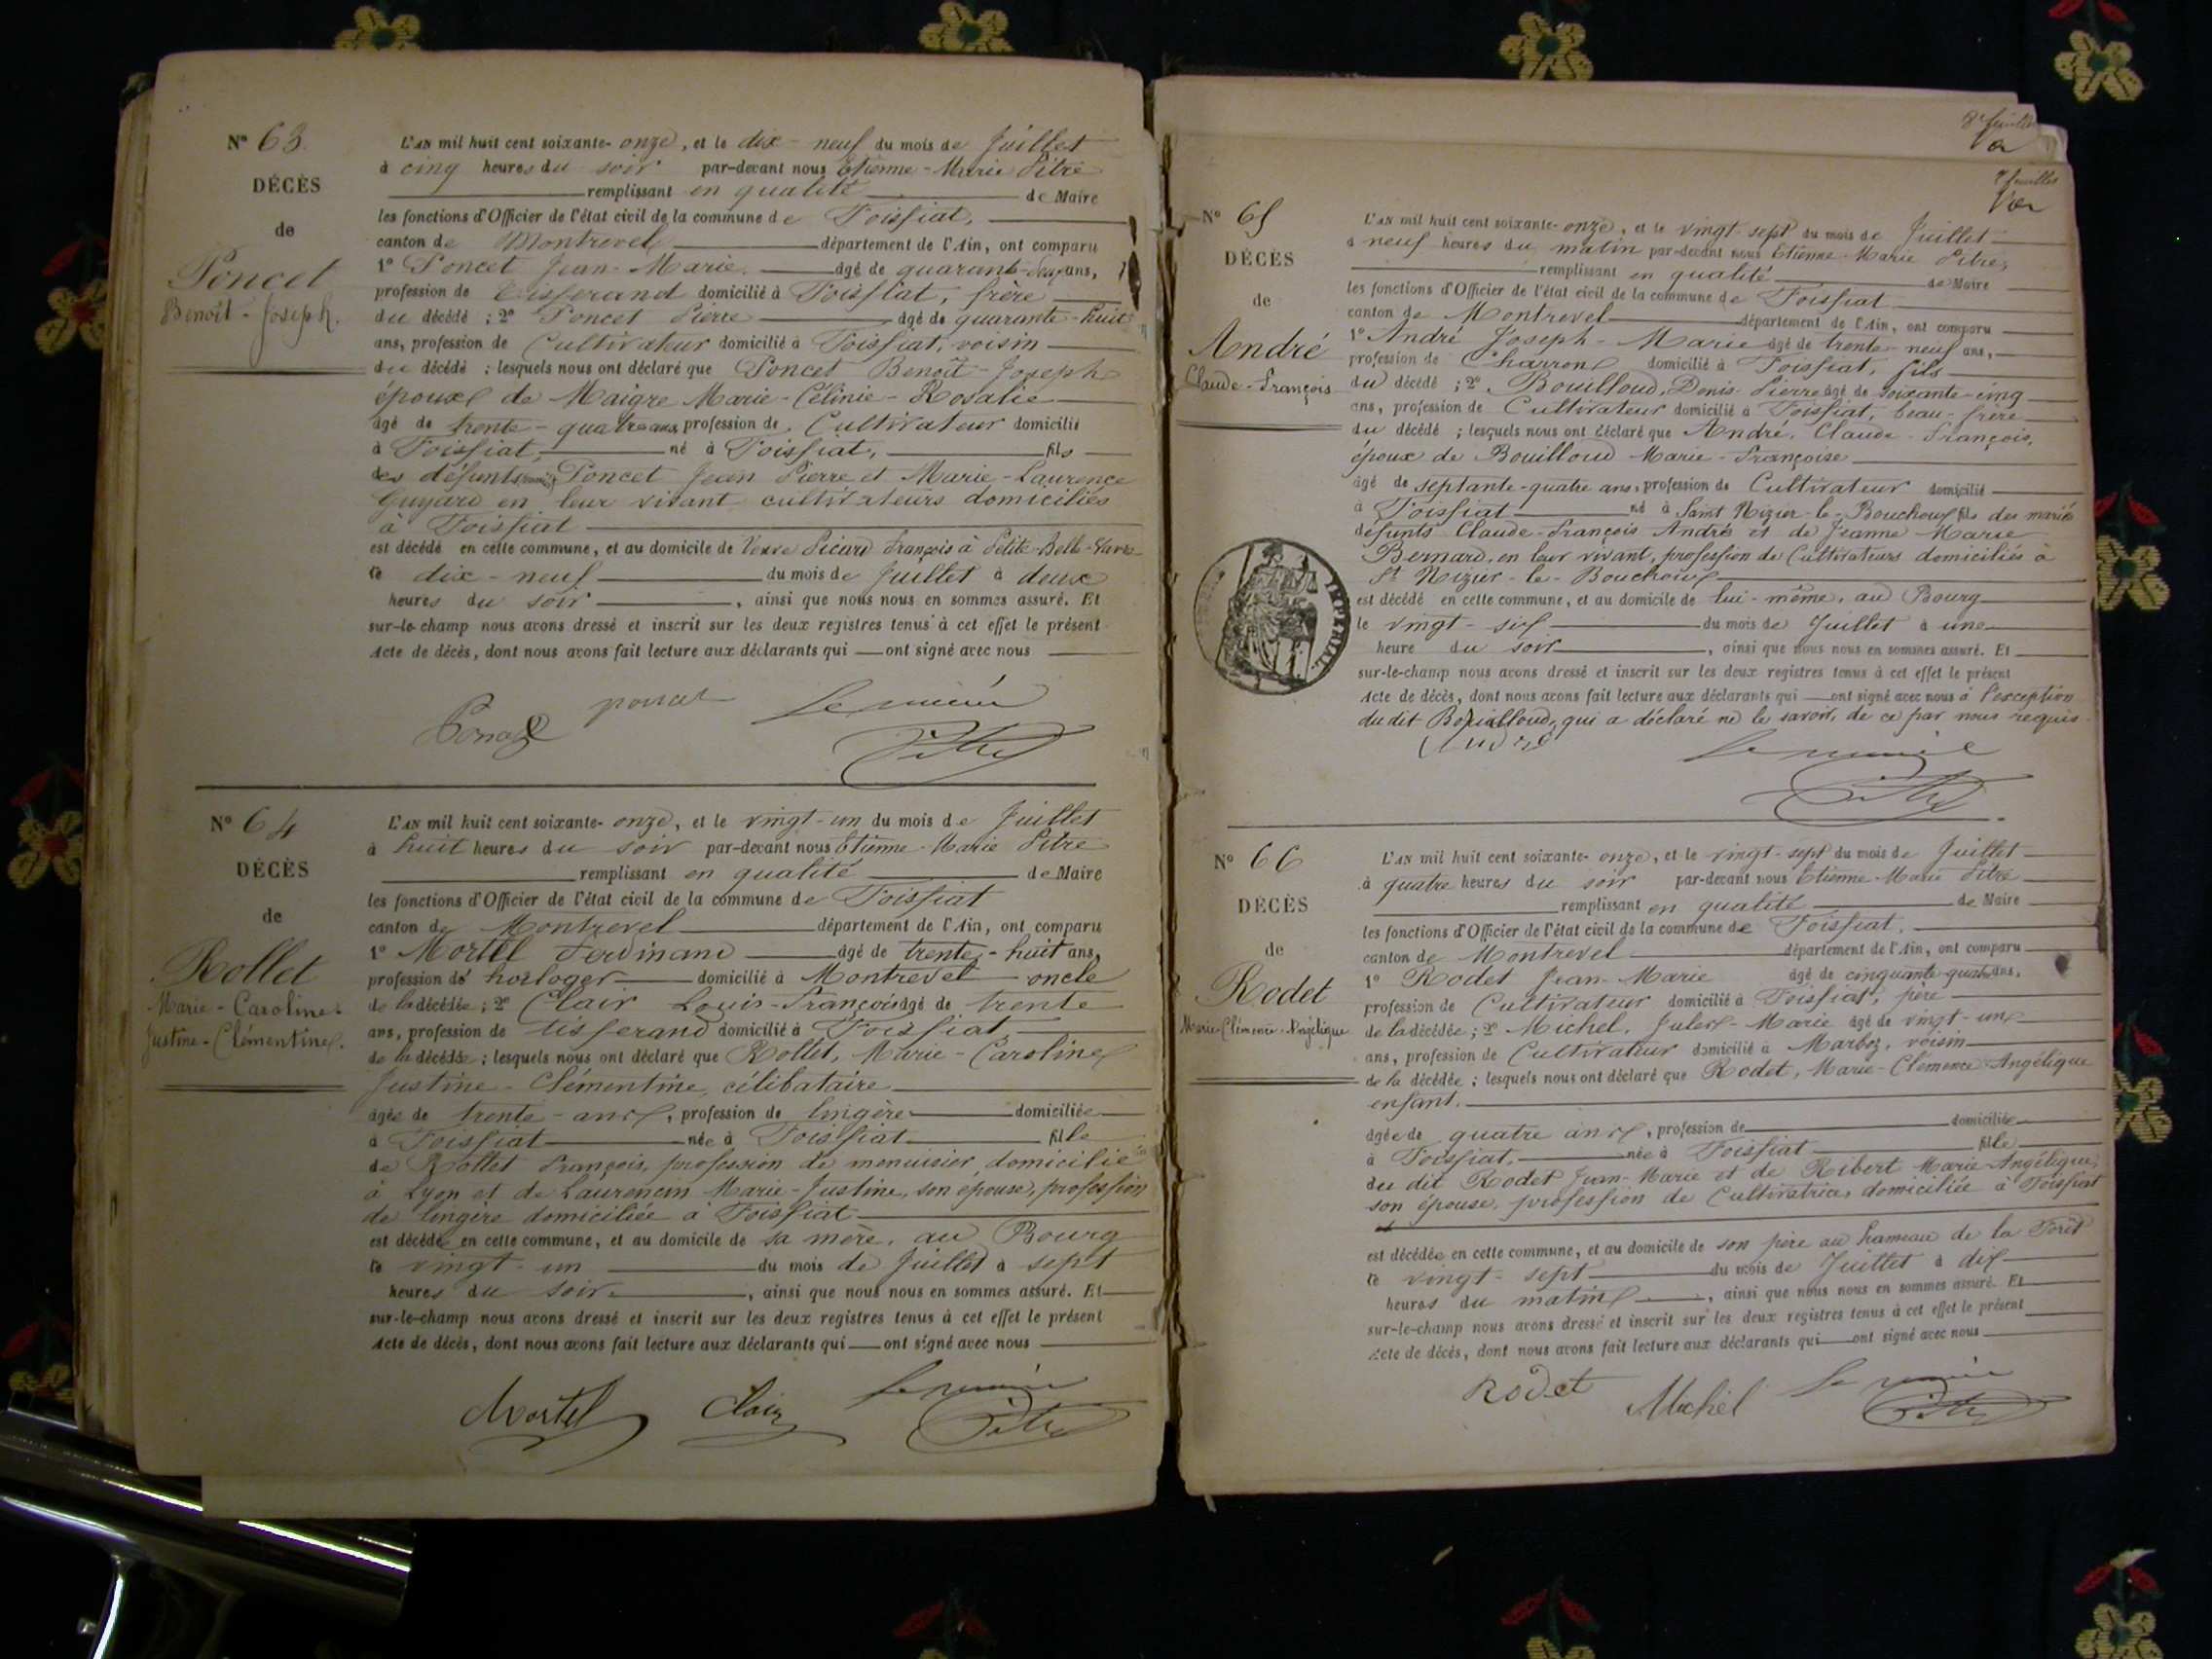 N° 63
DÉCÈS
de
Poncet
Benoît-Joseph.
L'AN mil huit cent soixante-onze, et le dix-neuf du mois de Juillet
à cinq heures du soir par-devant nous Etienne-Marie Pitre
remplissant en qualité de Maire
les fonctions d'Officier de l'état civil de la commune de Foissiat,
canton de Montrevel département de l'Ain, ont comparu
1° Poncet Jean-Marie âgé de quarante-deux ans,
profession de tisserand domicilié à Foissiat, frère
du décédé ; 2° Poncet Pierre âgé de quarante-huit
ans, profession de Cultivateur domicilié à Foissiat, voisin
du décédé ; lesquels nous ont déclaré que Poncet Benoît-Joseph
époux de Maigre Marie-Célinie-Rosalie
âgé de trente-quatre ans, profession de Cultivateur domicilié
à Foissiat, né à Foissiat, fils
des défunts Poncet Jean Pierre et Marie-Laurence
Guyard en leur vivant cultivateurs domiciliés
à Foissiat
est décédé en cette commune, et au domicile de Veuve Picard François à Petite Belle
le dix-neuf du mois de Juillet à deux
heures du soir, ainsi que nous nous en sommes assuré. Et
sur-le-champ nous avons dressé et inscrit sur les deux registres tenus à cet effet le présent
Acte de décès, dont nous avons fait lecture aux déclarants qui ont signé avec nous
Poncet poncet Le maire
Pitre
N° 64
DÉCÈS
de
Rollet
Marie-Caroline-
Justine-Clémentine.
L'AN mil huit cent soixante-onze, et le vingt-un du mois de Juillet
à huit heures du soir par-devant nous Etienne-Marie Pitre
remplissant en qualité de Maire
les fonctions d'Officier de l'état civil de la commune de Foissiat
canton de Montrevel département de l'Ain, ont comparu
1° Mortel Ferdinand âgé de trente-huit ans,
profession de horloger domicilié à Montrevel oncle
de la décédée ; 2° Clair Louis-François âgé de trente
ans, profession de tisserand domicilié à Foissiat
de la décédée ; lesquels nous ont déclaré que Rollet, Marie-Caroline
Justine-Clémentine, célibataire
âgée de trente-ans, profession de lingère domiciliée
à Foissiat née à Foissiat fille
de Rollet François, profession de menuisier, domicilié
à Lyon et de Laurencin Marie-Justine, son épouse, profession
de lingère domiciliée à Foissiat
est décédée en cette commune, et au domicile de sa mère, au Bourg
le vingt-un du mois de Juillet à sept
heures du soir, ainsi que nous nous en sommes assuré. Et
sur-le-champ nous avons dressé et inscrit sur les deux registres tenus à cet effet le présent
Acte de décès, dont nous avons fait lecture aux déclarants qui ont signé avec nous
Mortel Clair Le maire
Pitre
8e feuille
N° 65
DÉCÈS
de
André
Claude-François
IMPÉRIAL
L'AN mil huit cent soixante-onze, et le vingt-sept du mois de Juillet
à neuf heures du matin par-devant nous Etienne-Marie Pitre,
remplissant en qualité de Maire
les fonctions d'Officier de l'état civil de la commune de Foissiat
canton de Montrevel département de l'Ain, ont comparu
1° André Joseph-Marie âgé de trente-neuf ans,
profession de Charron domicilié à Foissiat, fils
du décédé ; 2° Bouilloud, Denis-Pierre âgé de soixante-cinq
ans, profession de Cultivateur domicilié à Foissiat, beau-frère
du décédé ; lesquels nous ont déclaré que André, Claude-François,
époux de Bouilloud Marie-Françoise
âgé de septante-quatre ans, profession de Cultivateur domicilié
à Foissiat né à Saint Nizier-le-Bouchoux fils des mariés
défunts Claude-François André et de Jeanne Marie
Bernard, en leur vivant, profession de Cultivateurs domiciliés à
St Nizier-le-Bouchoux
est décédé en cette commune, et au domicile de lui-même, au Bourg
le vingt-six du mois de Juillet à une
heure du soir, ainsi que nous nous en sommes assuré. Et
sur-le-champ nous avons dressé et inscrit sur les deux registres tenus à cet effet le présent
Acte de décès, dont nous avons fait lecture aux déclarants qui ont signé avec nous à l'exception
du dit Bouilloud, qui a déclaré ne le savoir, de ce par nous requis.
André Le maire
Pitre
N° 66
DÉCÈS
de
Rodet
Marie-Clémence-Angélique
L'AN mil huit cent soixante-onze, et le vingt-sept du mois de Juillet
à quatre heures du soir par-devant nous Etienne-Marie Pitre
remplissant en qualité de Maire
les fonctions d'Officier de l'état civil de la commune de Foissiat,
canton de Montrevel département de l'Ain, ont comparu
1° Rodet Jean-Marie âgé de cinquante-quatre ans,
profession de Cultivateur domicilié à Foissiat, père
de la décédée ; 2° Michel, Jules-Marie âgé de vingt-un
ans, profession de Cultivateur domicilié à Marboz, voisin
de la décédée ; lesquels nous ont déclaré que Rodet, Marie-Clémence Angélique
enfant.
âgée de quatre ans, profession de domiciliée
à Foissiat, née à Foissiat fille
du dit Rodet Jean-Marie et de Ribert Marie-Angélique,
son épouse, profession de Cultivatrice, domiciliée à Foissiat
est décédée en cette commune, et au domicile de son père au hameau de la Forêt
le vingt-sept du mois de Juillet à dix
heures du matin, ainsi que nous nous en sommes assuré. Et
sur-le-champ nous avons dressé et inscrit sur les deux registres tenus à cet effet le présent
Acte de décès, dont nous avons fait lecture aux déclarants qui ont signé avec nous
Rodet Michel Le maire
Pitre